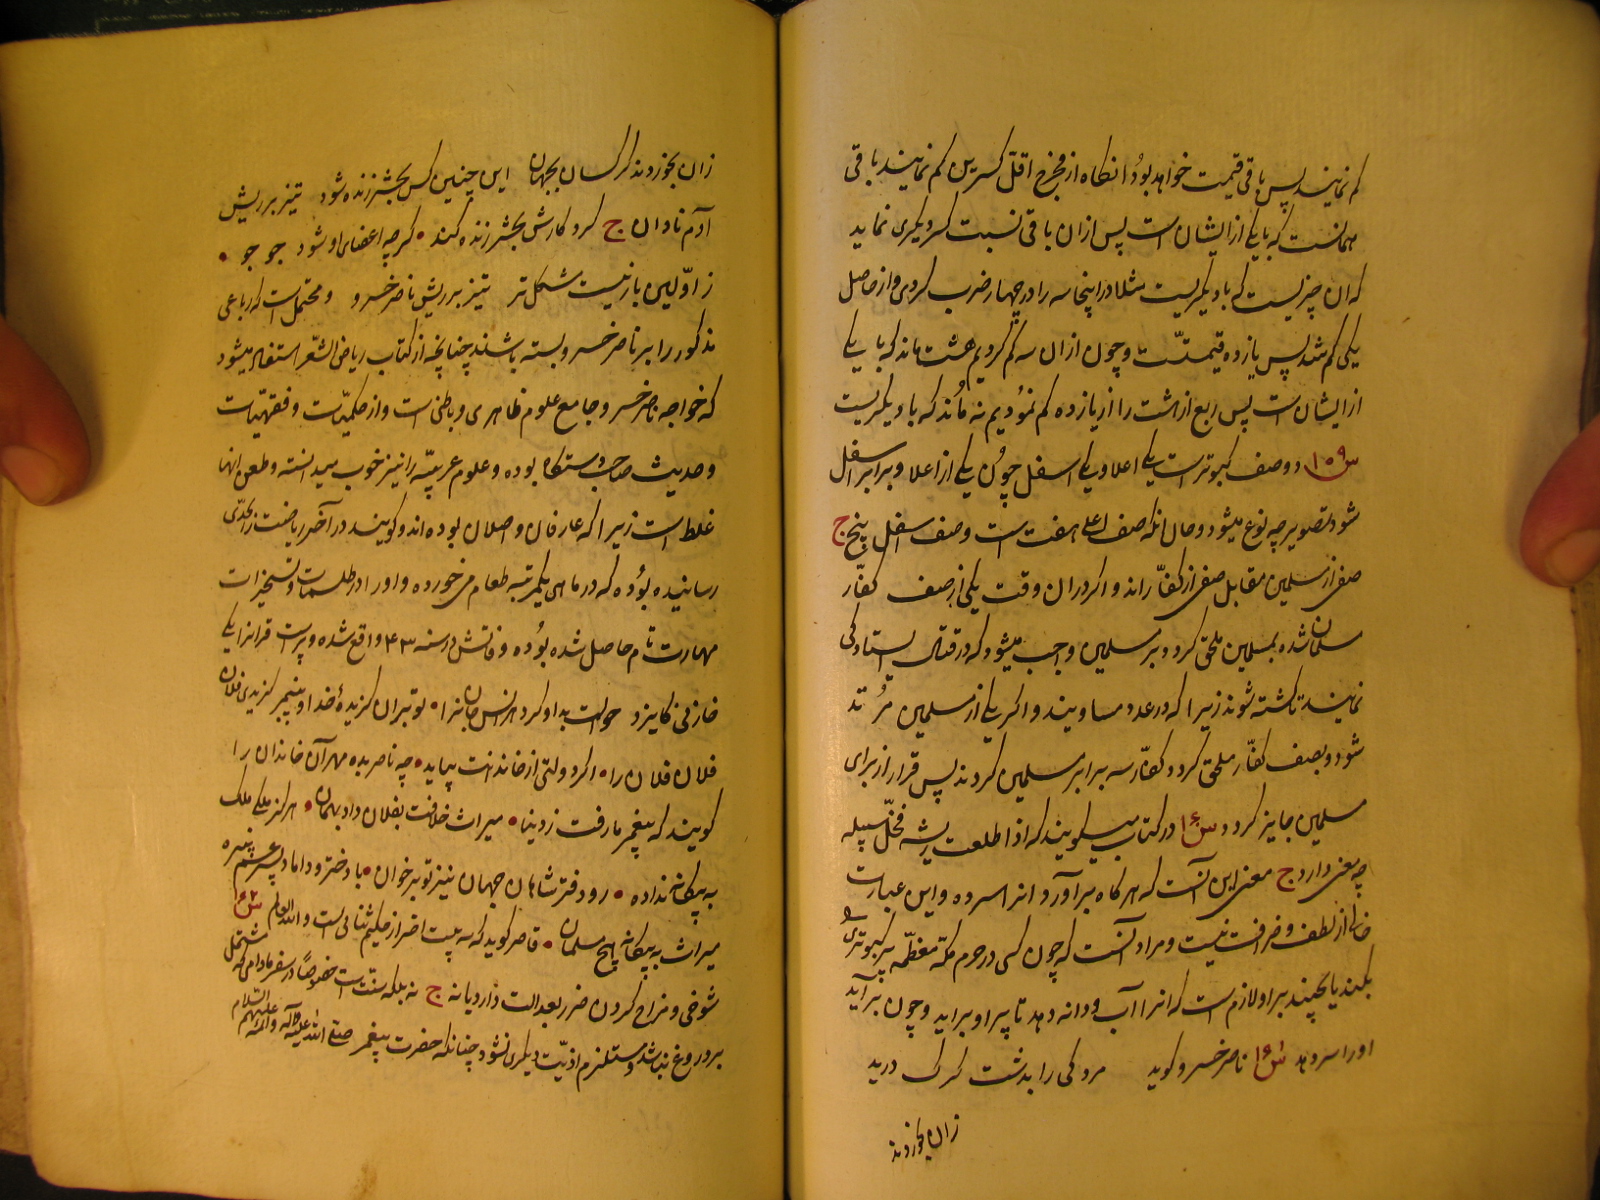 کم نمایند پس باقی قیمت خواهد بود و انکاه از مخرج اقل کسرین کم نمایند باقی
همانست که با یکی از ایشان است پس از ان باقی نسبت کسر دیکری نماید
که ان چیزیست که با دیکریست مثلا در اینجا سه را در چهار ضرب کردی و از حاصل
یکی کم شد پس یازده قیمتست و چون از ان سه کم کردیم هشت ماند که با یکی
از ایشان است پس ربع از هشت را از یازده کم نمودیم نه ماند که با دیکریست
س ۱۵۹ دو صف کبوتر است یکی اعلا و یکی اسفل چون یکی از اعلا برابر اسفل
شود تصویر چه نوع میشود و حال انکه صف اعلی هفت است و صف اسفل پنج ج
صفی از مسلمین مقابل صفی از کفار اند و اکر در ان وقت یکی از صف کفار
مسلمان شده بمسلمین ملحق کردد بر مسلمین واجب میشود که در قتال ایستادکی
نمایند تا کشته شوند زیرا که در عدد مساویند و اکر یکی از مسلمین مرتد
شود و بصف کفار ملحق کردد کفار سه برابر مسلمین کردند پس فرار از برای
مسلمین جایز کردد س ۱۶۰ در کتاب میکویند که اذا اطلعت ریشه فخل سبیله
چه معنی دارد ج معنی این آنست که هرکاه بر آورد انرا سر ده و این عبارت
خالی از لطف و ظرافت نیست و مراد آنست که چون کسی در حرم مکه معظمه پر کبوتری را
بکند یا بچیند بر او لازم است که انرا آب و دانه دهد تا پر او براید و چون برآید
اورا سر دهد س ۱۶۱ ناصر خسرو کوید مردکی را بدشت کرک درید
زان بخوردند
زان بخوردند کرکسان بجهان این چنین کس بحشر زنده شود تیز بر ریش
آدم نادان ج کرد کارش بحشر زنده کند کرچه اعضای او شود جو جو
ز اولین بار نیست شکل تر تیز بر ریش ناصر خسرو و محتمل است که رباعی
مذکور را بر ناصر خسرو بسته باشند چنانچه از کتاب ریاض الشعرا استفاد میشود
که خواجه ناصر خسرو جامع علوم ظاهری و باطنی است و از حکمیات و فقهیات
و حدیث صاحب دستکاه بوده و علوم عربیه را نیز خوب میدانسته و طعن انها
غلط است زیرا که عارفان واصلان بوده اند و کویند در آخر ریاضت را بحدی
رسانیده بوده که در ماهی یکمرتبه طعام میخورده و او را در طلسمات و تسخیرات
مهارت تام حاصل شده بوده و فاتش در سنه ۴۳ واقع شده و پر است قرانرا یکی
خازنی کایزد حوالت بد او کرد هر انس و جانرا لو تبران کزیده خدا و پیمبر کزیدی فلان
فلان فلان را اکر دولتی از خاندانت بباید چه ناصر بده مهر آن خاندان را
کویند که پیغمبر ما رفت ز دنیا میراث خلافت بفلان داد بهمان هرکز ملکی ملک
به بیکانه نداده رو دفتر شاهان جهان نیز تو بر خوان با دختر و داماد و پسر عم و نبیره
میراث به بیکانه هیچ مسلمان قاصر کوید که سه بیت اخر از حکیم ثنائی است و الله العالم س ۱۶۲
شوخی و مزاح کردن ضرر بعدالت دارد یا نه ج نه بلکه سنت است خصوصا در سفر مادامی که مشتمل
بر دروغ نباشد و مستلزم اذیت دیکری نشود چنانکه حضرت پیغمبر صلی الله علیه و آله و ائمه علیهم السلام